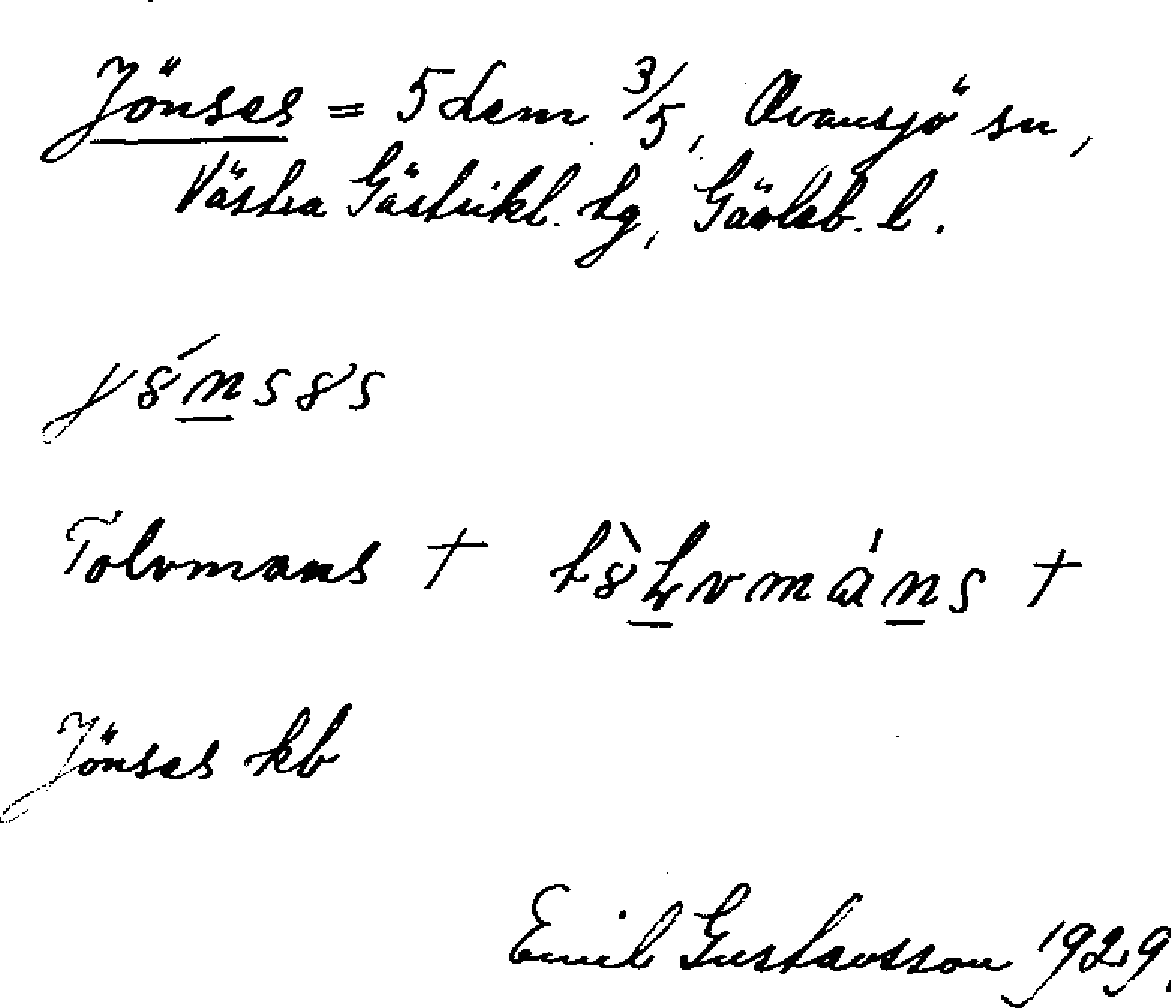 Jönses = 5 dem 3/5, Ovansjö sn,
Västra Gästrikl. tg, Gävleb. l.
Tolvmans †
Jönses kb
Emil Gustavsson 1929.